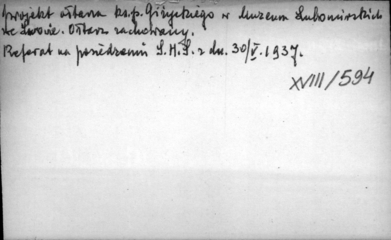 Projekt ołtarza ks. p. Giżyckiego w muzeum Lubomirskich
we Lwowie. Ołtarz zachowany.
Referat na posiedzeniu S.H.S. z dn. 30/V.1937.
XVIII/594